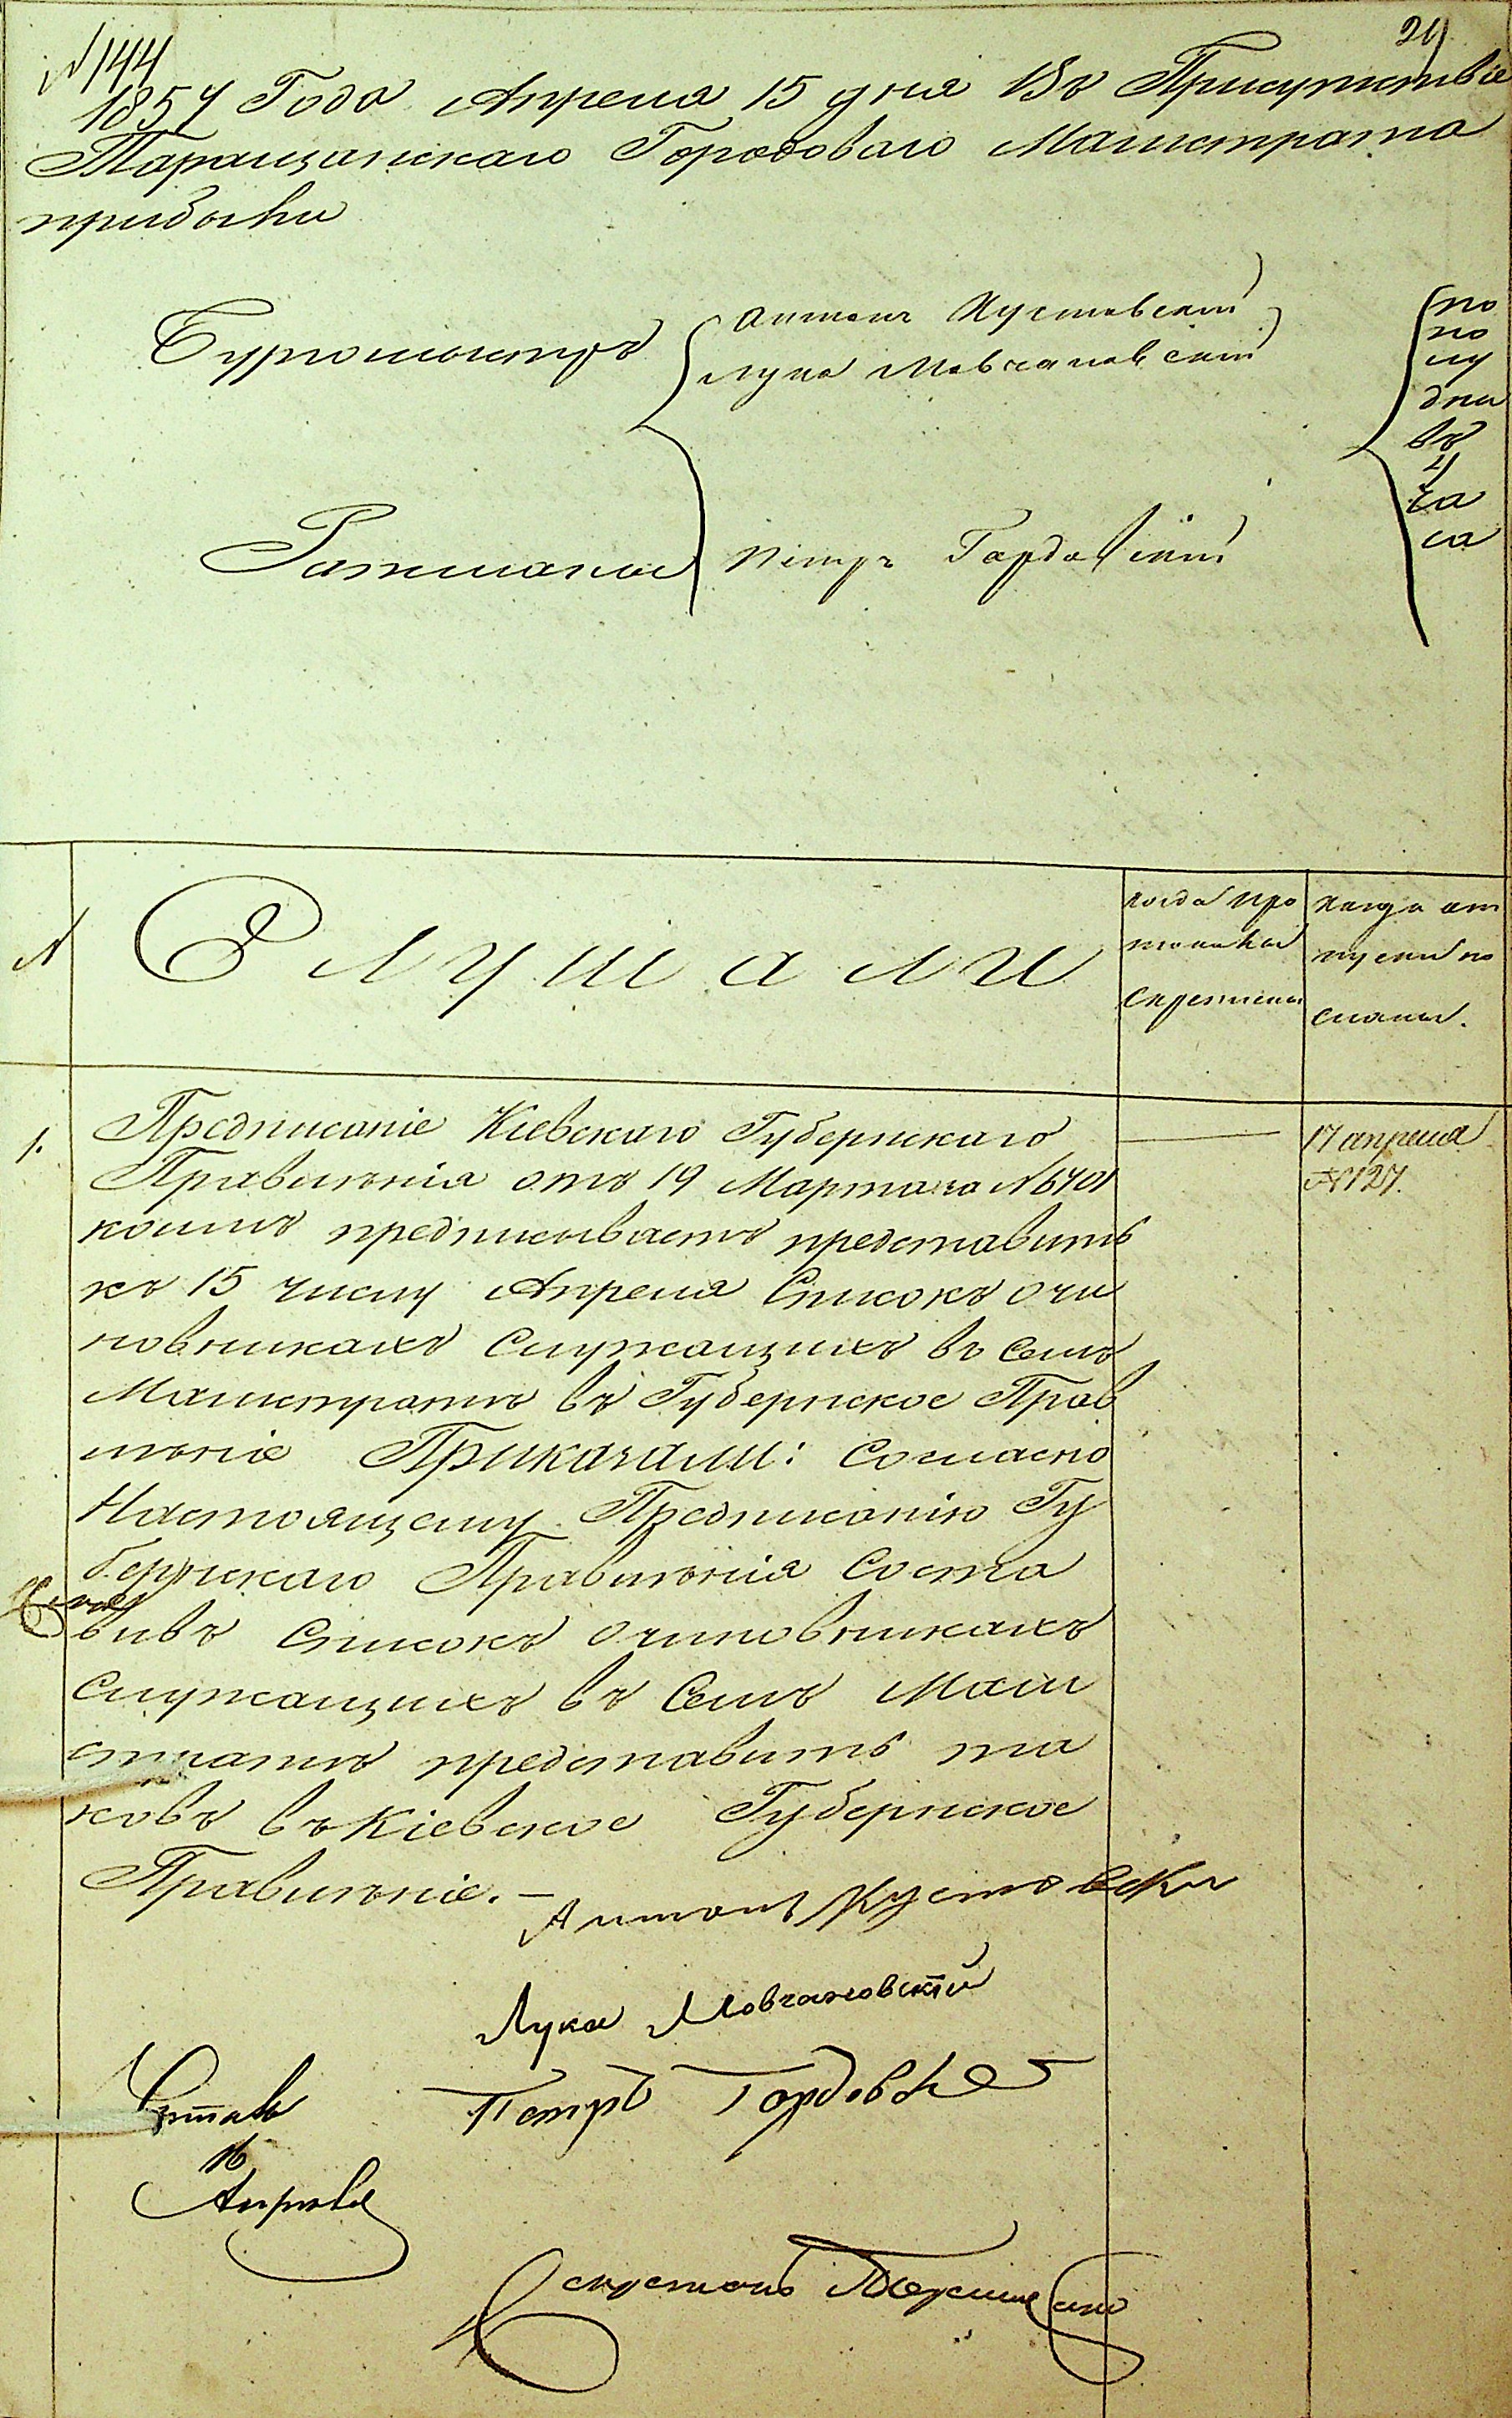 № 144
24
1857 Года Апреля 15 дня Въ Присутствіе
Таращанскаго Городоваго Магистрата
прибыли
Бургомистръ
Антонъ Кустовскій
Лука Мовчановскій
Ратманъ
Петръ Гордовскій
по
по
лу
дни
въ
4
ча
са
№
Слушали
когда про
токолы
скреплены
когда от
пуски по
сланы.
1.
Предписаніе Кіевскаго Губернскаго
Правленія отъ 19 Мартаго №6701
коимъ предписываетъ представить
къ 15 числу Апреля Списокъ очи
новникахъ Служащихъ въ Семъ
Магистратѣ въ Губернское Прав
леніе Приказали: Согласно
Настоящему Предписанію Гу
бернскаго Правленія Соста
вивъ Списокъ очиновникахъ
Служащихъ въ Семъ Маги
стратѣ представить та
ковъ въ Кіевское Губернское
Правленіе. —
17 апреля
№ 127.
Антонъ Кустовски
Лука Мовчановскій
Петръ Гордовскій
Читалъ
16
Апреля
Секретарь